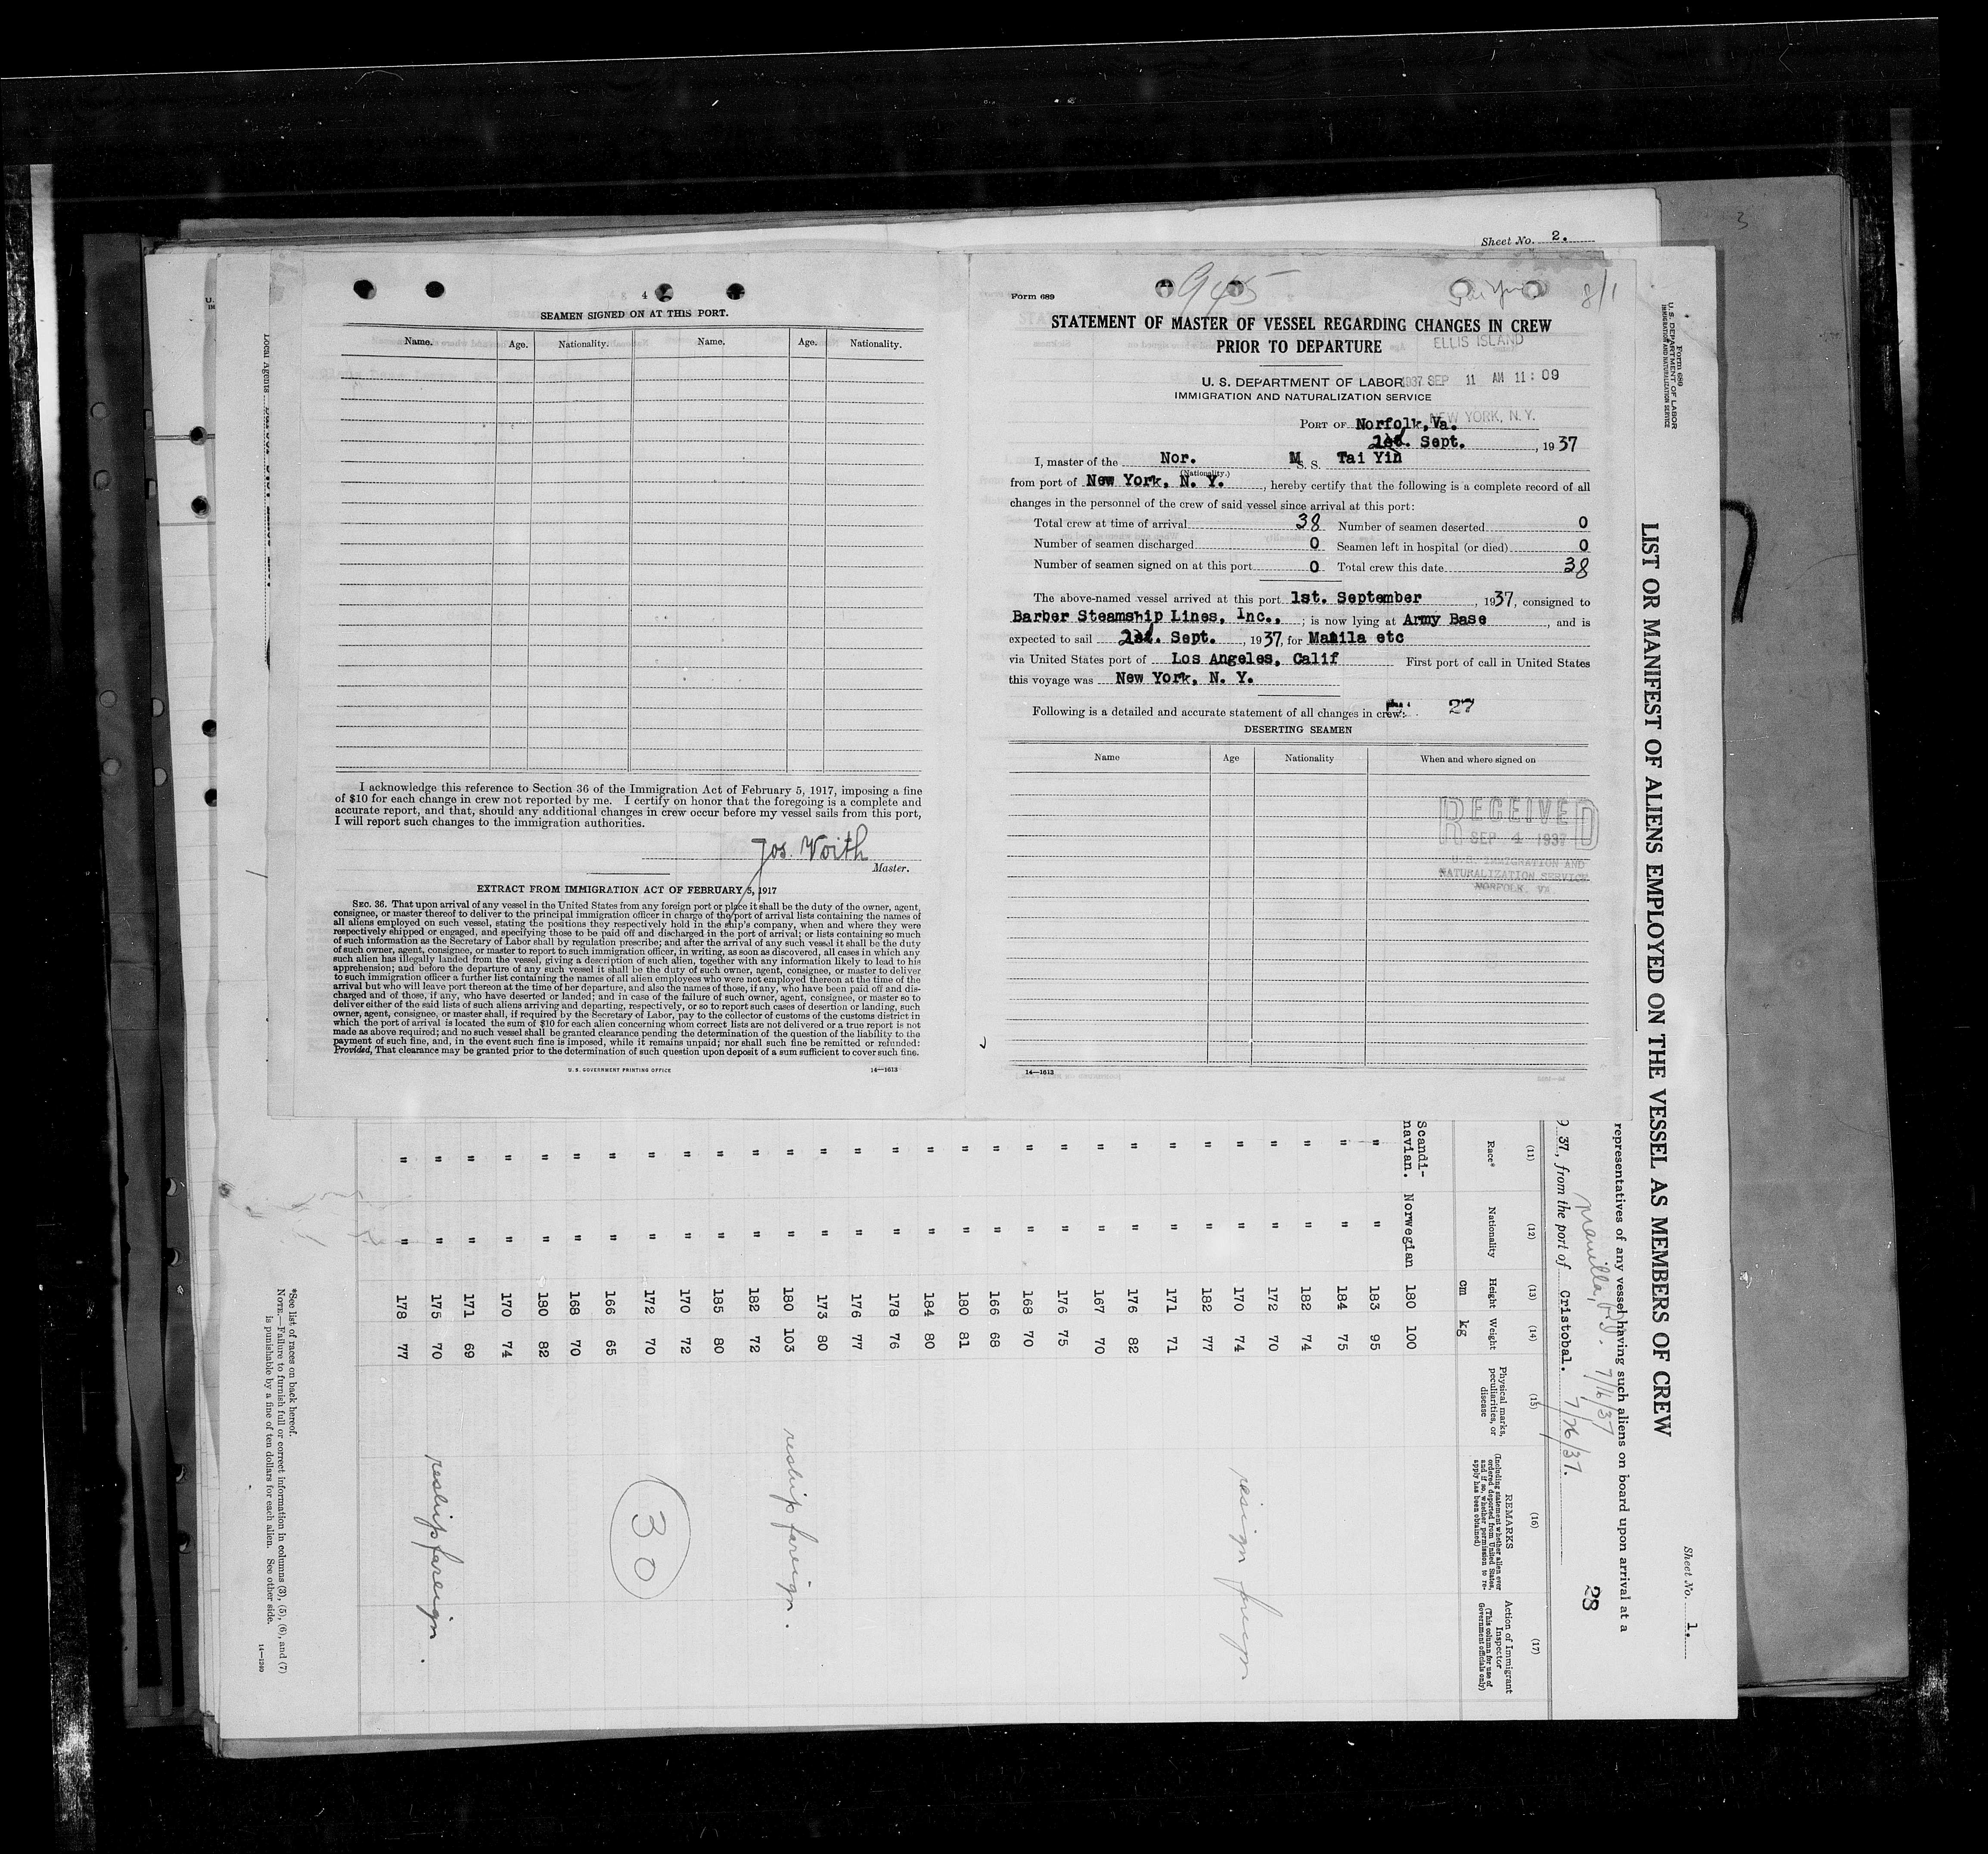 Sheet No. 2.
3
4
SEAMEN SIGNED ON AT THIS PORT.
Name. Age. Nationality. Name. Age. Nationality.
I acknowledge this reference to Section 36 of the Immigration Act of February 5, 1917, imposing a fine
of $10 for each change in crew not reported by me. I certify on honor that the foregoing is a complete and
accurate report, and that, should any additional changes in crew occur before my vessel sails from this port,
I will report such changes to the immigration authorities.
Jos. Voith
Master.
EXTRACT FROM IMMIGRATION ACT OF FEBRUARY 5, 1917
SEC. 36. That upon arrival of any vessel in the United States from any foreign port or place it shall be the duty of the owner, agent,
consignee, or master thereof to deliver to the principal immigration officer in charge of the port of arrival lists containing the names of
all aliens employed on such vessel, stating the positions they respectively hold in the ship's company, when and where they were
respectively shipped or engaged, and specifying those to be paid off and discharged in the port of arrival; or lists containing so much
of such information as the Secretary of Labor shall by regulation prescribe; and after the arrival of any such vessel it shall be the duty
of such owner, agent, consignee, or master to report to such immigration officer, in writing, as soon as discovered, all cases in which any
such alien has illegally landed from the vessel, giving a description of such alien, together with any information likely to lead to his
apprehension; and before the departure of any such vessel it shall be the duty of such owner, agent, consignee, or master to deliver
to such immigration officer a further list containing the names of all alien employees who were not employed thereon at the time of the
arrival but who will leave port thereon at the time of her departure, and also the names of those, if any, who have been paid off and dis-
charged and of those, if any, who have deserted or landed; and in case of the failure of such owner, agent, consignee, or master so to
deliver either of the said lists of such aliens arriving and departing, respectively, or so to report such cases of desertion or landing, such
owner, agent, consignee, or master shall, if required by the Secretary of Labor, pay to the collector of customs of the customs district in
which the port of arrival is located the sum of $10 for each alien concerning whom correct lists are not delivered or a true report is not
made as above required; and no such vessel shall be granted clearance pending the determination of the question of the liability to the
payment of such fine, and, in the event such fine is imposed, while it remains unpaid; nor shall such fine be remitted or refunded:
Provided, That clearance may be granted prior to the determination of such question upon deposit of a sum sufficient to cover such fine.
U. S. GOVERNMENT PRINTING OFFICE 14—1613
Form 689
945
8/1
STATEMENT OF MASTER OF VESSEL REGARDING CHANGES IN CREW
PRIOR TO DEPARTURE
ELLIS ISLAND
U. S. DEPARTMENT OF LABOR 1937 SEP 11 AM 11:09
IMMIGRATION AND NATURALIZATION SERVICE
NEW YORK, N. Y.
PORT OF Norfolk, Va.
Sept., 1937
I, master of the Nor. M S. S. Tai Yin
(Nationality.)
from port of New York, N. Y., hereby certify that the following is a complete record of all
changes in the personnel of the crew of said vessel since arrival at this port:
Total crew at time of arrival 38 Number of seamen deserted 0
Number of seamen discharged 0 Seamen left in hospital (or died) 0
Number of seamen signed on at this port 0 Total crew this date 38
The above-named vessel arrived at this port 1st. September, 1937, consigned to
Barber Steamship Lines, Inc., ; is now lying at Army Base, and is
expected to sail Sept., 1937, for Manila etc
via United States port of Los Angeles, Calif First port of call in United States
this voyage was New York, N. Y.
Following is a detailed and accurate statement of all changes in crew: 27
DESERTING SEAMEN
Name Age Nationality When and where signed on
RECEIVED
SEP 4 1937
U. S. IMMIGRATION AND
NATURALIZATION SERVICE
NORFOLK, VA.
14—1613
Local Agents
Form 689
U. S. DEPARTMENT OF LABOR
IMMIGRATION AND NATURALIZATION SERVICE
Sheet No. 1.
LIST OR MANIFEST OF ALIENS EMPLOYED ON THE VESSEL AS MEMBERS OF CREW
representatives of any vessel having such aliens on board upon arrival at a
Manilla, P.I. 7/16/37
28
37, from the port of Cristobal. 7/26/37.
(11) (12) (13) (14) (15) (16) (17)
Race* Nationality Height Weight Physical marks, peculiarities, or disease REMARKS (Including statement whether alien ever ordered deported from United States, and if so, whether permission to re-apply has been obtained) Action of Immigrant Inspector (This column for use of Government officials only)
cm kg
Scandi-
navian. Norwegian 180 100
" " 183 95
" " 184 75
" " 182 74
" " 172 70
" " 170 74 resign foreign
" " 182 77
" " 171 71
" " 176 82
" " 167 70
" " 176 75
" " 168 70
" " 166 68
" " 180 81
" " 184 80
" " 178 76
" " 176 77
" " 173 80
" " 180 103 reship foreign.
" " 182 72
" " 185 80
" " 170 72
" " 172 70 30
" " 166 65
" " 168 70
" " 180 82
" " 170 74
" " 171 69
" " 175 70 reship foreign.
" " 178 77
*See list of races on back hereof.
NOTE.—Failure to furnish full or correct information in columns (3), (5), (6), and (7)
is punishable by a fine of ten dollars for each alien. See other side.
14—1240